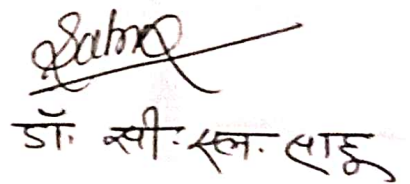 Sahu
डॉ. सी. एल. साहू